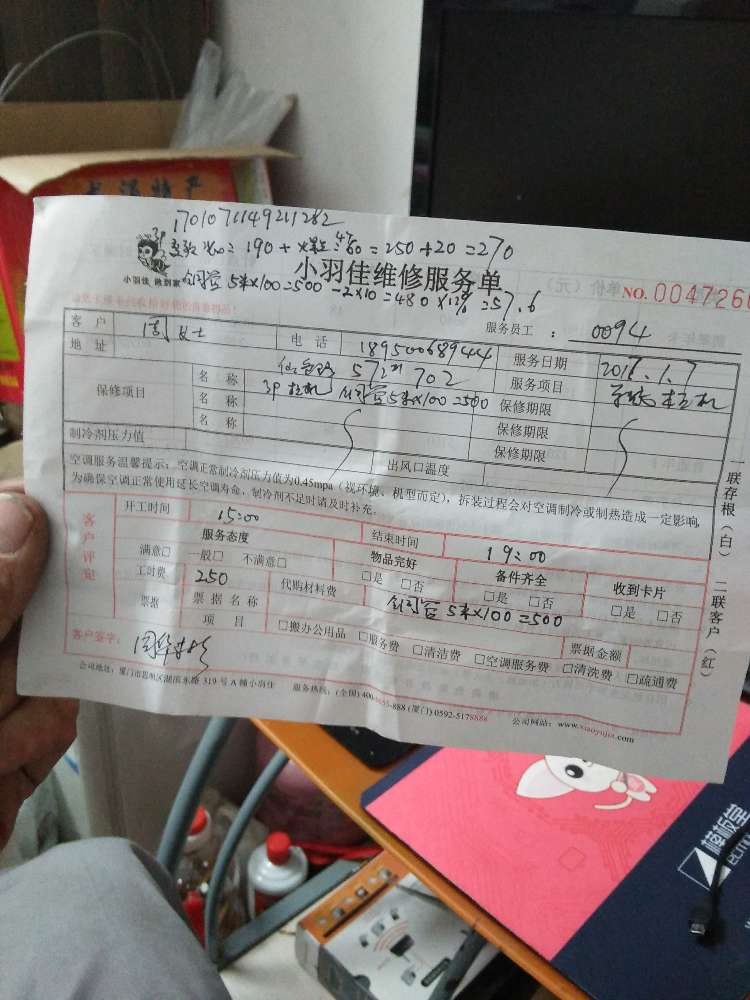 土温特产
17010711149211282
190 + 60 = 250 + 20 = 270
小羽佳 做到家
铜管 5米×100=500 -2×10=480×12%=57.6
小羽佳维修服务单
NO. 0047266
服务员工: 0094
客户 周女士 电话 18950068944 服务日期 2018.1.7
地址 572 702 服务项目
保修项目 名称 3P柜机 铜管5米×100=500 保修期限
名称 保修期限
名称 保修期限
制冷剂压力值 出风口温度
空调服务温馨提示:空调正常制冷剂压力值为0.45mpa(视环境、机型而定),拆装过程会对空调制冷或制热造成一定影响,
为确保空调正常使用延长空调寿命,制冷剂不足时请及时补充。
客户评定
开工时间 15:00 结束时间 19:00
服务态度 物品完好 备件齐全 收到卡片
满意□ 一般□ 不满意□ □是 □否 □是 □否 □是 □否
工时费 250 代购材料费 铜管 5米×100=500
票据 票据名称 票据金额
项目 □搬办公用品 □服务费 □清洁费 □空调服务费 □清洗费 □疏通费
客户签字:
公司地址:厦门市思明区湖滨东路 319 号 A 幢小羽佳 服务热线:(全国) 400-8855-888 (厦门) 0592-5178888 公司网站:www.xiaoyujia.com
一联存根(白) 二联客户(红)